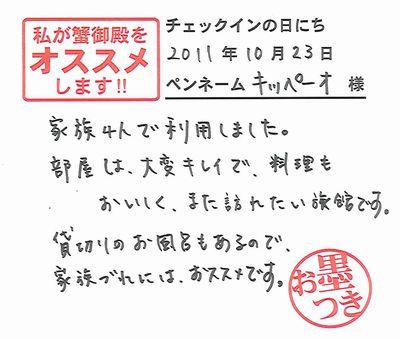 私が蟹御殿を
オススメ
します!!
チェックインの日にち
2011年10月23日
ペンネーム キッペーオ 様
家族4人で利用しました。
部屋は、大変キレイで、料理も
おいしく、また訪れたい旅館です。
貸切りのお風呂もあるので、
家族づれには、おススメです。
お墨つき